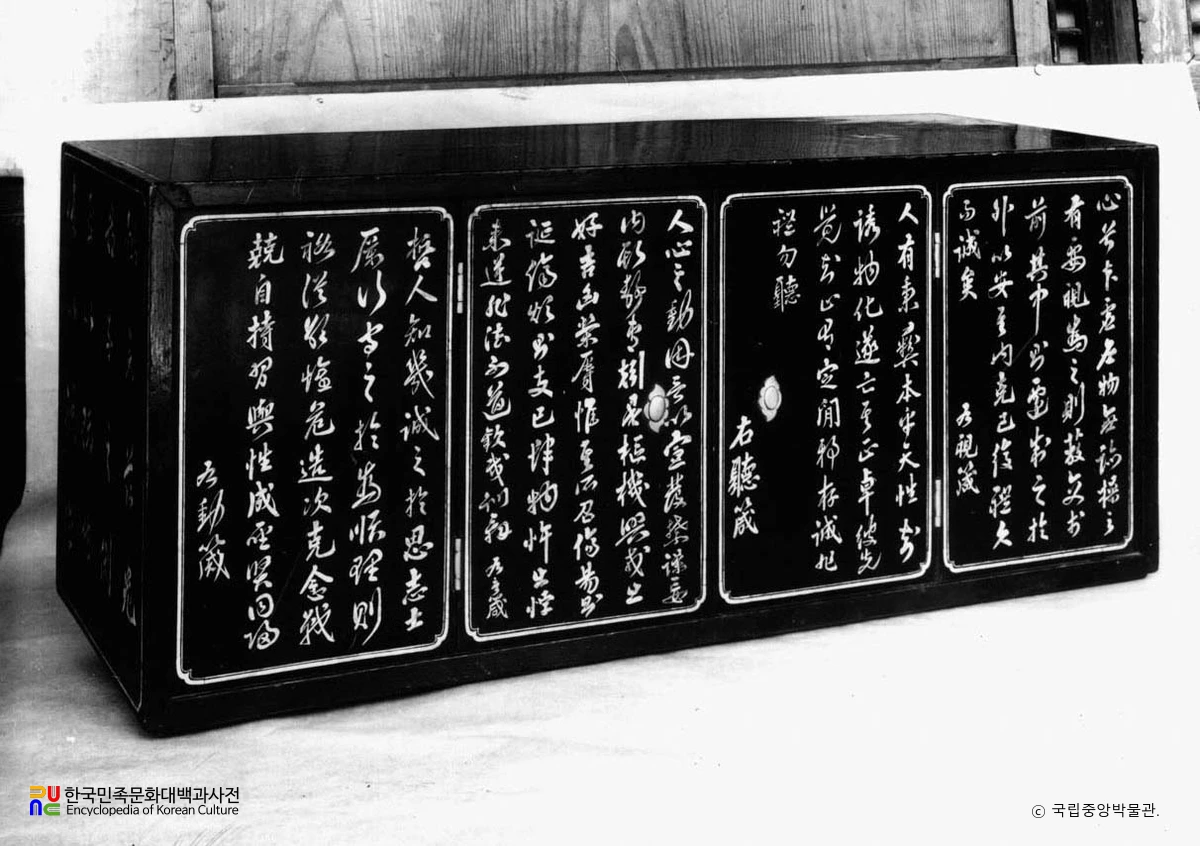 心兮本虛應物無跡操之
有要視為之則蔽交於
前其中則遷制之於
外以安其內克己復禮久
而誠矣 右視箴
人有秉彝本乎天性知
誘物化遂亡其正卓彼先
覺知止有定閑邪存誠非
禮勿聽
右聽箴
人心之動因言以宣發禁躁妄
內斯靜專矧是樞機興戎出
好吉凶榮辱惟其所召傷易則
誕傷煩則支己肆物忤出悖
來違非法不道欽哉訓辭 右言箴
哲人知幾誠之於思志士
厲行守之於為順理則
裕從欲惟危造次克念戰
兢自持習與性成聖賢同歸
右動箴
한국민족문화대백과사전
Encyclopedia of Korean Culture
ⓒ 국립중앙박물관.